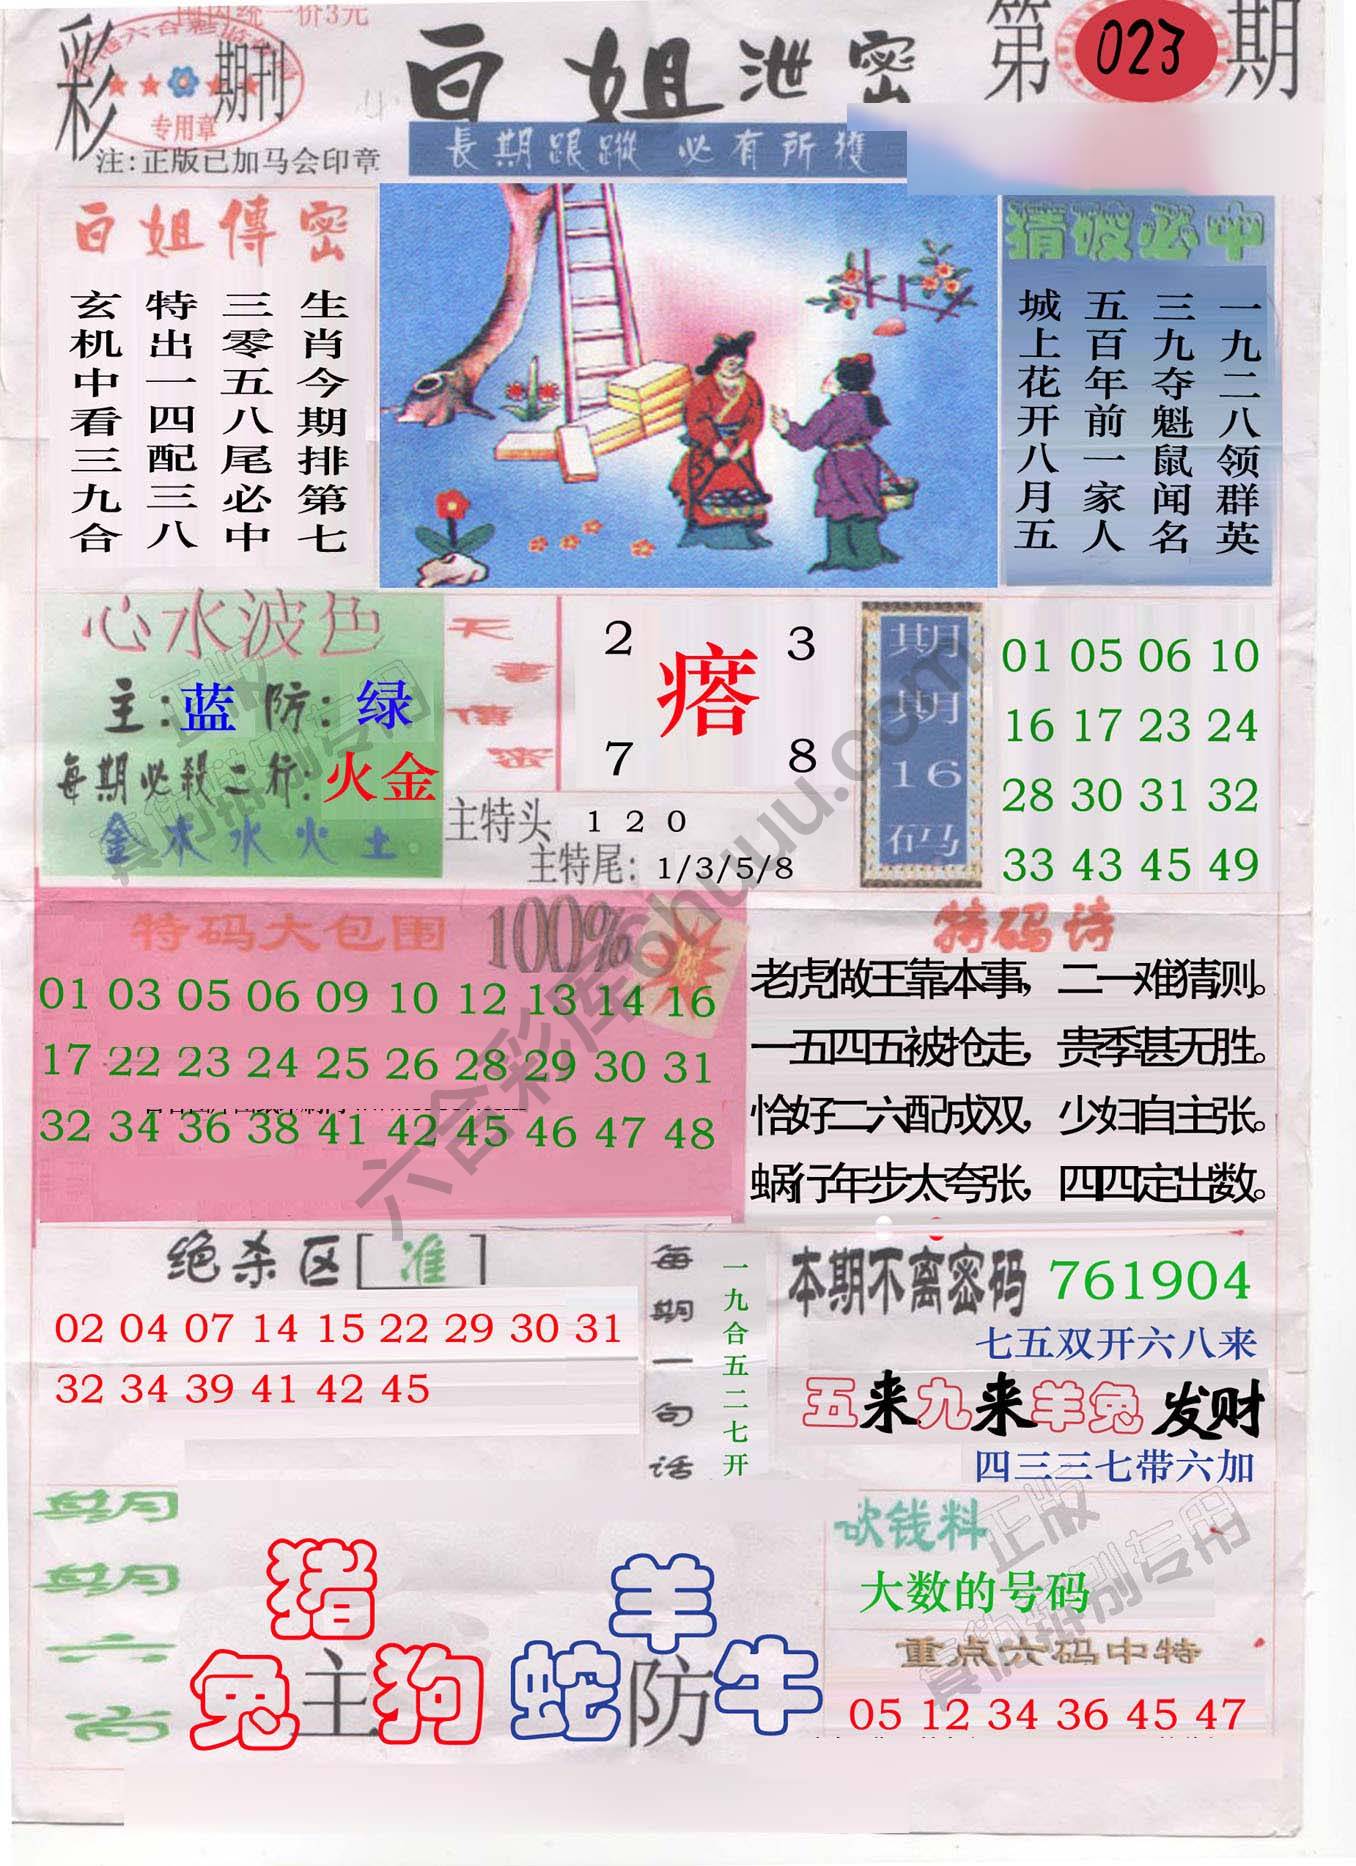 国内统一价3元
彩
期刊
专用章
注:正版已加马会印章
白姐泄密
第023期
長期跟蹤 必有所獲
白姐傳密
生肖今期排第七
三零五八尾必中
特出一四配三八
玄机中看三九合
猜波必中
一九二八领群英
三九夺魁鼠闻名
五百年前一家人
城上花开八月五
心水波色
主:蓝 防:绿
每期必殺二行:火金
金木水火土
天書傳密
2 3
瘩
7 8
主特头 1 2 0
主特尾: 1/3/5/8
期期16码
01 05 06 10
16 17 23 24
28 30 31 32
33 43 45 49
特码大包围 100%
01 03 05 06 09 10 12 13 14 16
17 22 23 24 25 26 28 29 30 31
32 34 36 38 41 42 45 46 47 48
特码诗
老虎做王靠本事，二一难猜测。
一五四五被抢走，贵季甚无胜。
恰好二六配成双，少妇自主张。
蜗行年步太夸张，四四定出数。
绝杀区[准]
02 04 07 14 15 22 29 30 31
32 34 39 41 42 45
每期一句话
一九合五二七开
本期不离密码 761904
七五双开六八来
五来九来羊兔发财
四三三七带六加
期期六肖
猪
兔主狗
羊
蛇防牛
砍钱料
大数的号码
重点六码中特
05 12 34 36 45 47
六合彩库ohuu.com
正版
真伪辨别专用
正版
真伪辨别专用